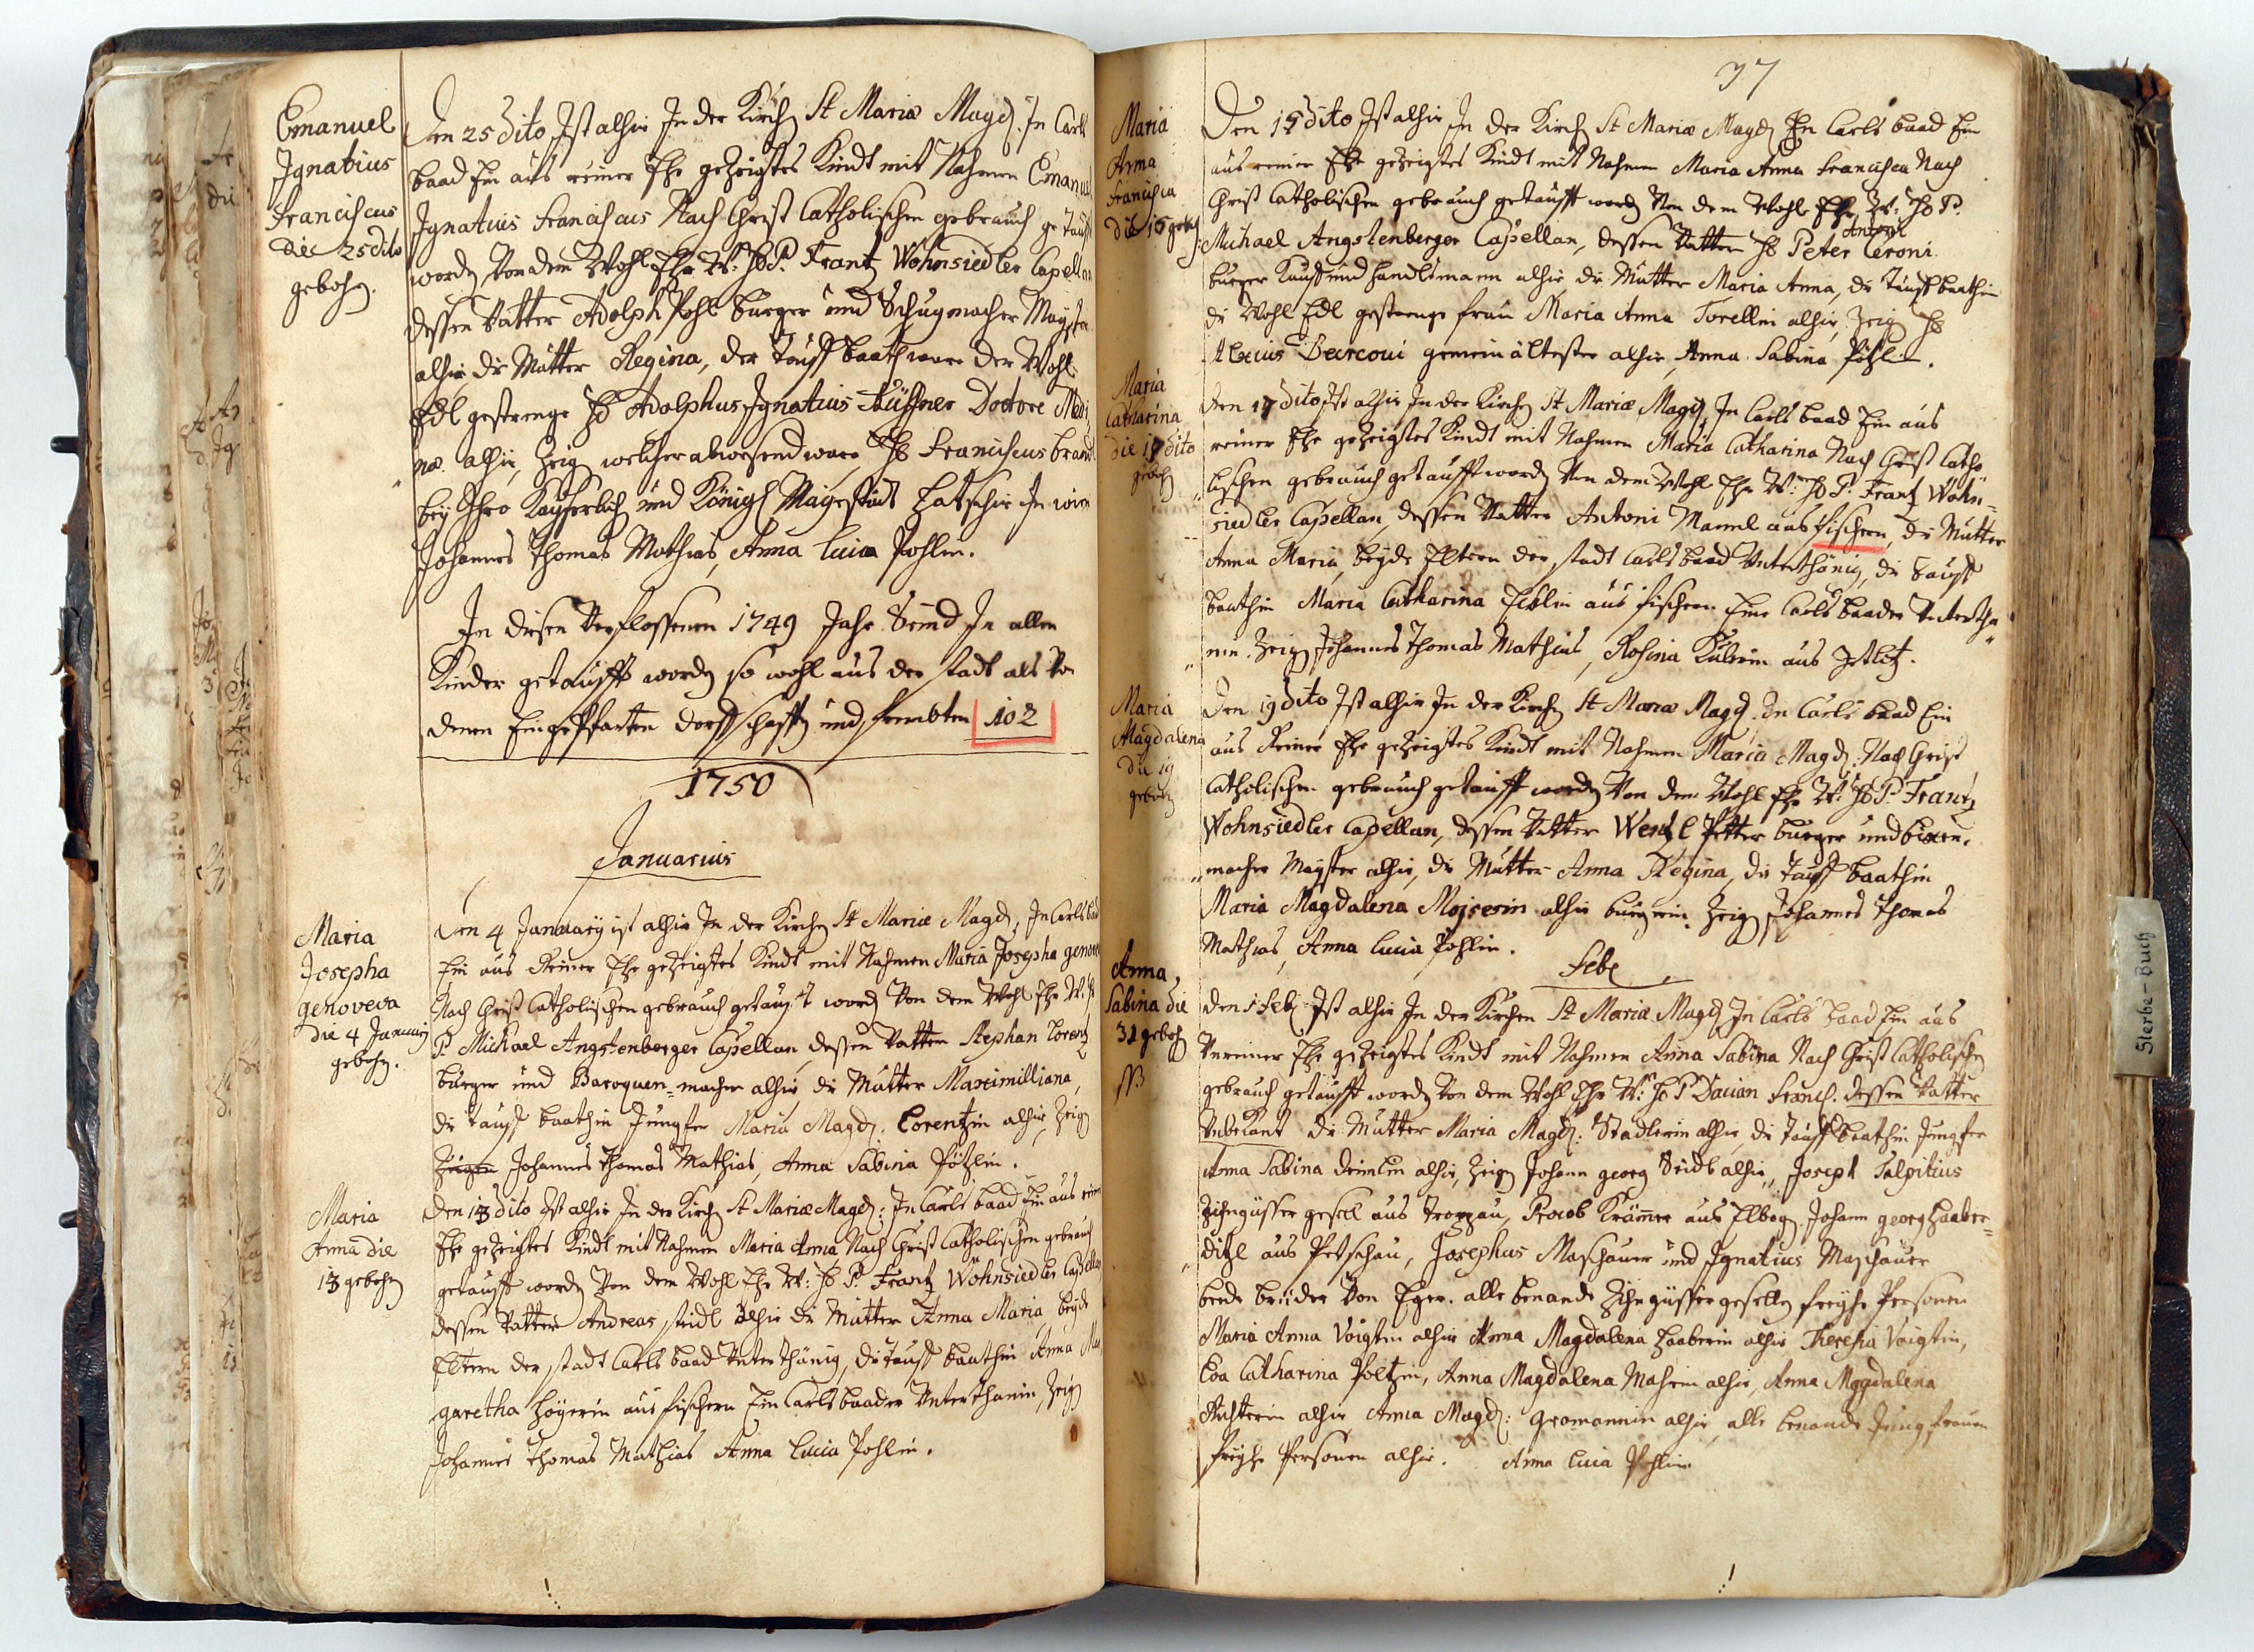 Emanuel
Ignatius
Franciscus
die 25 dito
gebohrn.
Den 25 dito Ist alhir In der Kirch St Mariæ Magd. In Carls
baad Ein aus reiner Ehe gezeigtes Kindt mit Nahmen Emanuel
Ignatius Franciscus Nach Christ Catholischen gebrauch getaufft
worden Von dem Wohl Ehr W: H P. Frantz Wohnsiedler Capellan
dessen Vatter Adolph Pohl burger und Schugmacher Mayster
alhir, die Mutter Regina, der tauff baath ware der Wohl
Edl gestrenge H Adolphus Ignatius Doctore Medi
næ alhir, Zeig welcher abwesend ware H Franciscus brand
bey Ihro Kayserlich und Königl Mayestät In wien
Johannes Thomas Mathias, Anna Lucia Pohlin.
In diesen Verflossenen 1749 Jahr Seind In allen
Kinder getaufft worden so wohl aus der stadt als Von
denen Eingepfarten dorffschafften und frembten 102
1750
Januarius
Maria
Josepha
genoveva
die 4 January
gebohrn.
Den 4 January ist alhir In der Kirchen St Mariæ Magd. In Carlsbad
Ein aus Reiner Ehe gezeigtes Kindt mit Nahmen Maria Josepha genove
Nach Christ Catholischen gebrauch getaufft worden Von dem Wohl Ehr W. H
P. Michael Angstenberger Capellan, dessen Vatter Stephan Lorentz
burger und Baroquen=macher alhir, die Mutter Maximilliana,
die tauff baathin Jungfer Maria Magd: Lorentzin alhir, Zeig
Zeigen Johannes Thomas Mathias, Anna Sabina Pötzlin.
Maria
Anna die
13 gebohrn
Den 13 dito Ist alhir In der Kirch St Mariæ Magd: In Carls baad Ein aus reiner
Ehe gezeigtes Kindt mit Nahmen Maria Anna Nach Christ Catholischen gebrauch
getaufft worden Von dem Wohl Ehr W: H P. Frantz Wohnsiedler Capellan
dessen Vatter Andreas Seidl alhir die Mutter Anna Maria, beyde
Eltern der stadt Carls baad Unterthänig, die tauff baathin Anna Mar
garetha Hoyerin aus fischern Ein Carlsbaader Unterthanin, Zeig
Johannes Thomas Mathias Anna Lucia Pohlin.
37
Maria
Anna
Francisca
die 15 gebohrn
Den 15 dito Ist alhir In der Kirch St Mariæ Magd In Carls baad Ein
aus reiner Ehe gezeigtes Kindt mit Nahmen Maria Anna Francisca Nach
Christ Catholischen gebrauch getaufft worden Von dem Wohl Ehr W: H P.
Michael Angstenberger Capellan, dessen Vatter H Peter Antoni Ceroni
burger Kauff und handlsmann alhir die Mutter Maria Anna, die tauff baathin
die Wohl Edl gestrenge frau Maria Anna Torellin alhir, Zeig H
Alexius Becrconi gemein ältester alhir, Anna Sabina Pötzlin.
Maria
Catharina
die 17 dito
gebohrn
Den 17 dito Ist alhir In der Kirchen St Mariæ Magd In Carls baad Ein aus
reiner Ehe gezeigtes Kindt mit Nahmen Maria Catharina Nach Christ Catho
lischen gebrauch getaufft worden Von dem Wohl Ehr W: H P. Frantz Wohn=
siedler Capellan, dessen Vatter Antoni Mannl aus fischern, die Mutter
Anna Maria, beyde Eltern der stadt Carls baad Unterthänig, die tauff
baathin Maria Catharina aus fischern Eine Carls baader Untertha
nin. Zeig Johannes Thomas Mathias, Rosina aus Zetlitz.
Maria
Magdalena
die 19
gebohrn
Den 19 dito Ist alhir In der Kirchen St Mariæ Magd. In Carls baad Ein
aus Reiner Ehe gezeigtes Kindt mit Nahmen Maria Magd. Nach Christ
Catholischen gebrauch getaufft worden Von dem Wohl Ehr W: H P. Frantz
Wohnsiedler Capellan, dessen Vatter Wentzl Petter burger und bixen=
macher Mayster alhir, die Mutter Anna Regina, die tauff baathin
Maria Magdalena Moyserin alhir burgerin. Zeig Johannes Thomas
Mathias, Anna Lucia Pohlin.
Feb
Anna
Sabina die
31 gebohrn
Den 1 Feb: Ist alhir In der Kirchen St Mariæ Magd In Carls baad Ein aus
Unreiner Ehe gezeigtes Kindt mit Nahmen Anna Sabina Nach Christ Catholischen
gebrauch getaufft worden Von dem Wohl Ehr W: H P Dacian Franc. dessen Vatter
Unbekant die Mutter Maria Magd: Stadlerin alhir, die tauff baathin Jungfer
Anna Sabina alhir, Zeig Johann georg Seidl alhir, Joseph Sulpitius
Zihngüsser gesell aus Troppau, Procob Krämer aus Elbogen. Johann georg Haaber=
ditzl aus Petschau, Josephus Maschauer und Ignatius Maschauer
beede brüder Von Eger. alle benande Zihngüsser gesellen freyhe Personen
Maria Anna Voigtin alhir Anna Magdalena Haaberin alhir Theresia Voigtin,
Eva Catharina Poltzin, Anna Magdalena alhir, Anna Magdalena
Richterin alhir Anna Magd: gromannin alhir, alle benande Jungfrauen
freyhe Personen alhir. Anna Lucia Pohlin
Sterbe-Buch